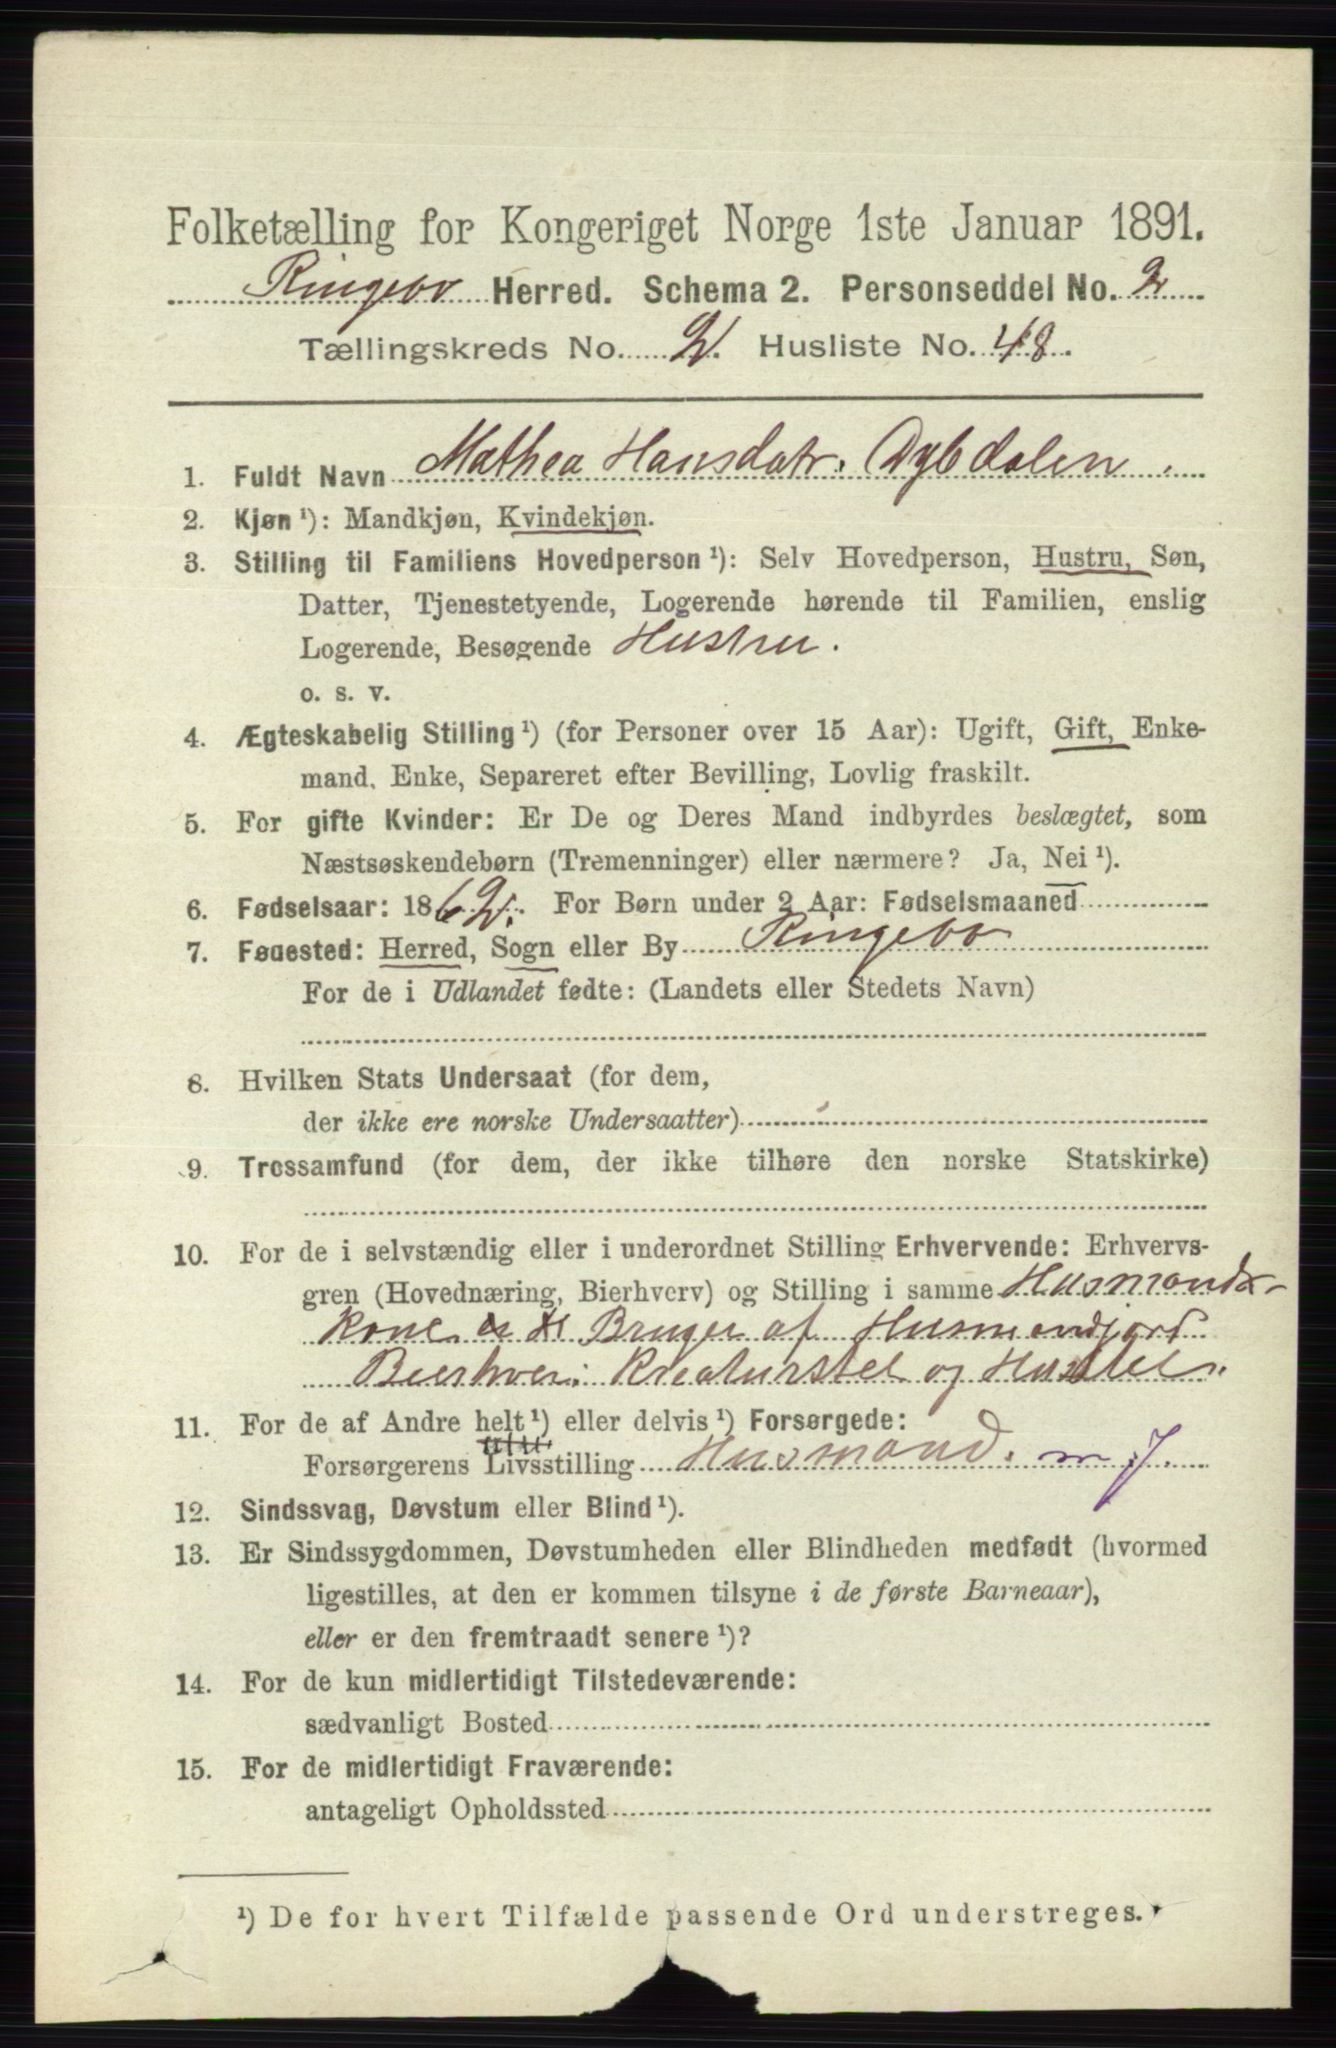 Folketælling for Kongeriget Norge 1ste Januar 1891.
Ringebo Herred. Schema 2. Personseddel No. 2
Tællingskreds No. 2. Husliste No. 48.
1. Fuldt Navn Mathea Hansdatr. Dybdalen.
2. Kjøn ¹): Mandkjøn, Kvindekjøn.
3. Stilling til Familiens Hovedperson ¹): Selv Hovedperson, Hustru, Søn,
Datter, Tjenestetyende, Logerende hørende til Familien, enslig
Logerende, Besøgende Hustru.
o. s. v.
4. Ægteskabelig Stilling ¹) (for Personer over 15 Aar): Ugift, Gift, Enke-
mand, Enke, Separeret efter Bevilling, Lovlig fraskilt.
5. For gifte Kvinder: Er De og Deres Mand indbyrdes beslægtet, som
Næstsøskendebørn (Tremenninger) eller nærmere? Ja, Nei ¹).
6. Fødselsaar: 1862. For Børn under 2 Aar: Fødselsmaaned
7. Fødested: Herred, Sogn eller By Ringebo
For de i Udlandet fødte: (Landets eller Stedets Navn)
8. Hvilken Stats Undersaat (for dem,
der ikke ere norske Undersaatter)
9. Trossamfund (for dem, der ikke tilhøre den norske Statskirke)
10. For de i selvstændig eller i underordnet Stilling Erhvervende: Erhvervs-
gren (Hovednæring, Bierhverv) og Stilling i samme Husmands-
kone Bruger af Husmandjord
Bierhver: Kreaturstel og Husstel.
11. For de af Andre helt ¹) eller delvis ¹) Forsørgede:
Forsørgerens Livsstilling Husmand. m J.
12. Sindssvag, Døvstum eller Blind ¹).
13. Er Sindssygdommen, Døvstumheden eller Blindheden medfødt (hvormed
ligestilles, at den er kommen tilsyne i de første Barneaar),
eller er den fremtraadt senere ¹)?
14. For de kun midlertidigt Tilstedeværende:
sædvanligt Bosted
15. For de midlertidigt Fraværende:
antageligt Opholdssted
¹) De for hvert Tilfælde passende Ord understreges.